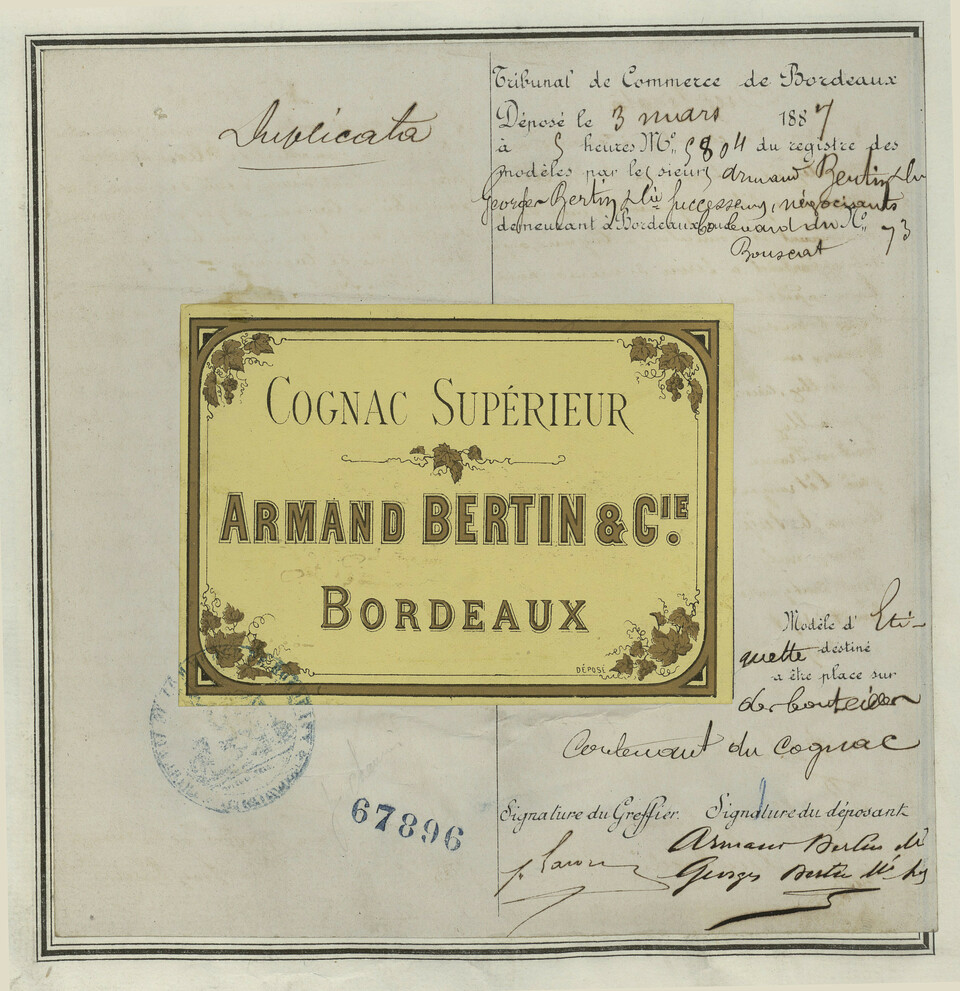 Duplicata
Tribunal de Commerce de Bordeaux
Déposé le 3 mars 1887
à 5 heures Mo. 5804 du registre des
modèles par les sieurs Armand Bertin & Cie
Georges Bertin & Cie successeurs, négociants
demeurant à Bordeaux boulevard du No. 73
Bouscat
COGNAC SUPÉRIEUR
ARMAND BERTIN & CIE.
BORDEAUX
DÉPOSÉ
Modèle d' Eti-
quette destiné
a être place sur
des bouteilles
Contenant du Cognac
67896
Signature du Greffier. Signature du déposant
Armand Bertin
Georges Bertin